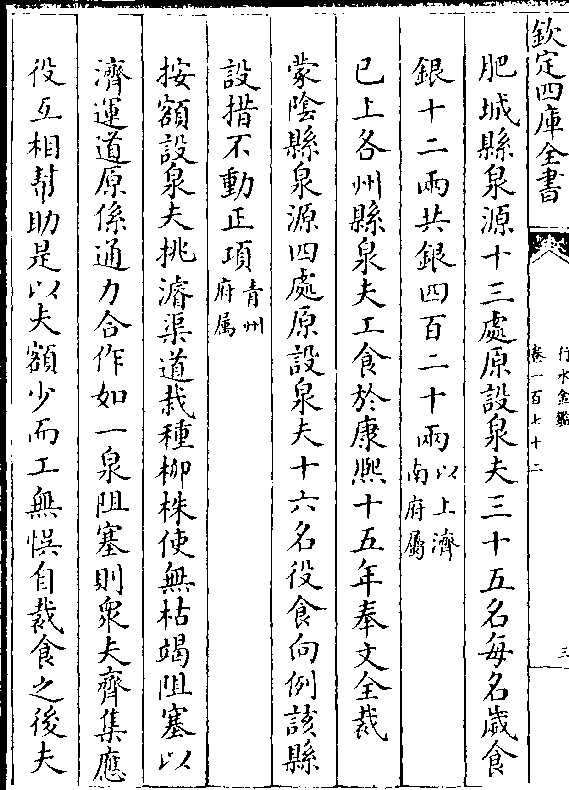 欽定四庫全書
行水金鑑
卷一百七十二
三
肥城縣泉源十三處原設泉夫三十五名每名歲食
銀十二兩共銀四百二十兩以上濟南府屬
已上各州縣泉夫工食於康熙十五年奉文全裁
蒙陰縣泉源四處原設泉夫十六名役食向例該縣
設措不動正項青州府屬
按額設泉夫挑濬渠道栽種柳株使無枯竭阻塞以
濟運道原係通力合作如一泉阻塞則衆夫齊集應
役互相幫助是以夫額少而工無悞自裁食之後夫